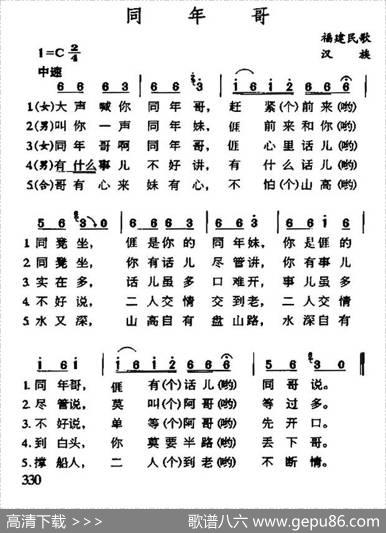 同 年 哥
福建民歌
汉 族
1=C 2/4
中速
6 6 6 3 6 6 3 i 6 i 2 6 6 6
1.(女)大声喊你 同年哥, 赶 紧(个)前来(哟)
2.(男)叫你一声 同年妹, 𠊎 前来和你(哟)
3.(女)同年哥啊 同年哥, 𠊎 心里话儿(哟)
4.(男)有什么事儿 不好讲, 有 什么话儿(哟)
5.(合)哥有心来 妹有心, 不 怕(个)山高(哟)
5 6 3 0 6 6 6 3 6 6 3 6 6 i 6
1.同凳坐, 𠊎是你的 同年妹, 你是𠊎的
2.同凳坐, 你有话儿 尽管讲, 你有事儿
3.实在多, 话儿虽多 口难开, 事儿虽多
4.不好说, 二人交情 交到老, 二人交情
5.水又深, 山高自有 盘山路, 水深自有
i 6 i i 6 i 2 6 6 6 5 6 3 0
1.同年哥, 𠊎 有(个)话儿(哟) 同哥说。
2.尽管说, 莫 叫(个)阿哥(哟) 等过多。
3.不好说, 单 等(个)阿哥(哟) 先开口。
4.到白头, 你 莫要半路(哟) 丢下哥。
5.撑船人, 二 人(个)到老(哟) 不断情。
330
高清下载 >>> 歌谱八六 www.gepu86.com